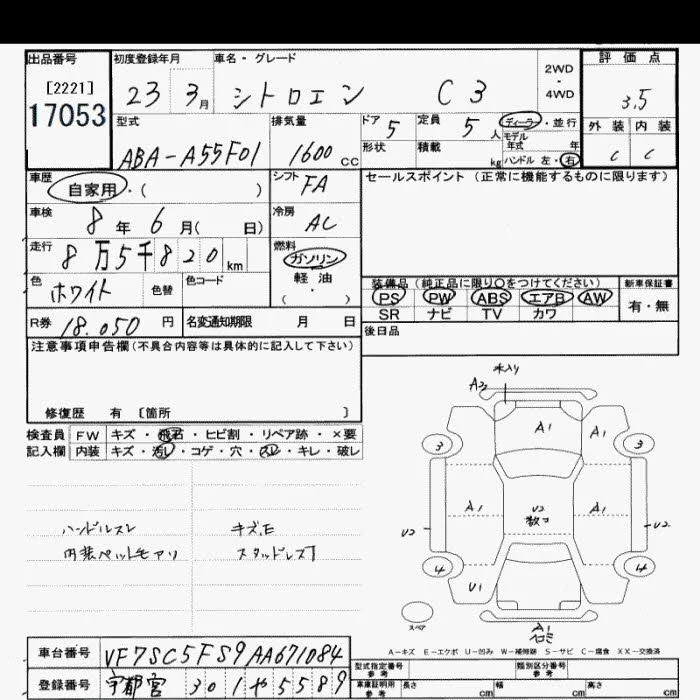 出品番号 初度登録年月 車名・グレード 2WD・4WD 評価点
[2221]
17053
23 3月 シトロエン C3 3.5
型式 排気量 ドア 5 定員 5人 ディーラー・並行 外装 内装
ABA-A55F01 1600cc 形状 積載 kg モデル年式 年
ハンドル 左・右 C C
車歴 自家用・( ) シフト FA セールスポイント (正常に機能するものに限ります)
車検 8年6月( 日) 冷房 AC
走行 8万5千820km 燃料 ガソリン
軽油
( ・ )
色 ホワイト 色替 色コード
装備品 (純正品に限り○をつけてください) 新車保証書
PS PW ABS エアB AW 有・無
SR ナビ TV カワ
R券 18.050円 名変通知期限 月 日 後日品
注意事項申告欄 (不具合内容等は具体的に記入して下さい)
修復歴 有 [箇所 ]
検査員 FW キズ・飛石・ヒビ割・リペア跡・×要
記入欄 内装 キズ・汚レ・コゲ・穴・スレ・キレ・破レ
ハンドルスレ キズ.E
内装ペットモアリ スタッドレス
A2
A1 A1
3 3
A1 U2 A1
U2 U2
4 4
U1
スペア
A1
A-キズ E-エクボ U-凹み W-補修跡 S-サビ C-腐食 XX-交換済
車台番号 VF7SC5FS9AA671084 型式指定番号 参考 類別区分番号 参考
登録番号 宇都宮 301や5589 車庫証明用 参考 長さ cm 幅 cm 高さ cm